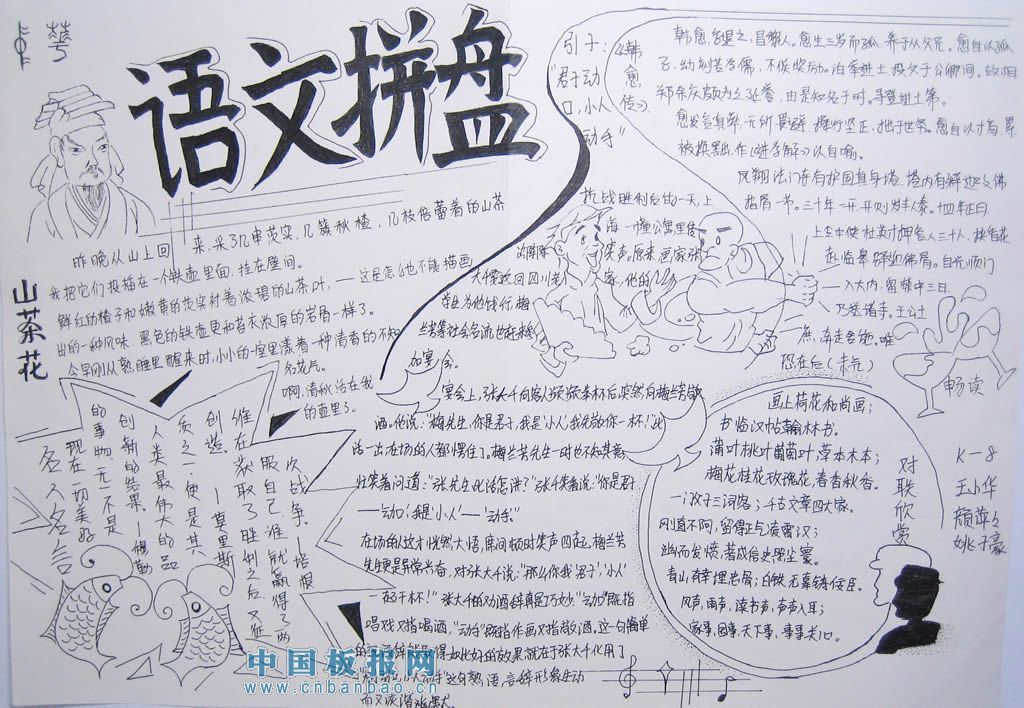 语文拼盘
山茶花
昨晚从山上回来,采了几串茨实,几簇秋楂,几枝蓓蕾着的山茶
我把它们投插在一个铁壶里面,挂在壁间。
鲜红的楂子和嫩黄的茨实衬着浓碧的山茶叶,——这是怎么也不能描画
出的一种风味。黑色的铁壶更和苔衣深厚的岩骨一样了。
今早刚从熟睡里醒来时,小小的一室里漾着一种清香的不知
名花气。
啊,清秋活在我
的壶里了。
引子:
"君子动
口,小人
动手"
《韩愈传》
韩愈,字退之,昌黎人。愈生三岁而孤,养于从父兄。愈自以孤
子,幼刻苦学儒,不俟奖励。洎举进士,投文于公卿间。故相
郑余庆颇为之延誉,由是知名于时。寻登进士第。
愈发言真率,无所畏避,操行坚正,拙于世务。愈自以才高累
被摈黜,作《进学解》以自喻。
凤翔法门寺有护国真身塔,塔内有释迦文佛
指骨一节。三十年一开,开则岁丰人泰。十四年正月
上令中使杜英奇押宫人三十人,持香花
赴临皋驿迎佛骨。自光顺门
入大内,留禁中三日,
乃送诸寺。王公士
庶,奔走舍施,唯
恐在后(未完)
畅读
抗战胜利后的一天,上
海一幢公寓里传
出阵阵笑声,原来画家张
大千要返回四川老家,他的
学生为他饯行,梅
兰芳等社会名流也赶来参
加宴会。
宴会上,张大千向客人
酒。他说:"梅先生,你是君子,我是小人,我先敬你一杯!"此
话一出,在场的人都愣住了。梅兰芳先生一时也不知其意
忙笑着问道:"张先生此话怎讲?"张大千笑着说:"你是君
——动口,我是'小人'——动手。"
在场的人这才恍然大悟,席间顿时笑声四起,梅兰芳
先生更是异常兴奋,对张大千说:"那么你我'君子'、'小人'
一起干杯!"张大千的劝酒辞真是巧妙。"动口"既指
唱戏又指喝酒,"动手"既指作画又指敬酒。这一句简单
得如此好的效果,就在于张大千化用了
小人动手"这句熟语,言辞形象生动
而又诙谐幽默。
名人名言
现在一切美好
的事物,无一不是
创新的结果。——穆勒
人类最伟大的品
质之一便是其
创造。——莫里斯
维在获取了胜利之后又征
服自己,谁就赢得了两
次战争。——培根
对联欣赏
画上荷花和尚画;
书临汉帖翰林书。
蒲叶桃叶葡萄叶,草本木本;
梅花桂花玫瑰花,春香秋香。
一门父子三词客;千古文章四大家。
刚直不阿,留得正气凌霄汉;
幽而发愤,著成信史照尘寰。
青山有幸埋忠骨;白铁无辜铸佞臣。
风声,雨声,读书声,声声入耳;
家事,国事,天下事,事事关心。
K-8
王小华
颜萍
姚子豪
中国板报网
www.cnbanbao.cn